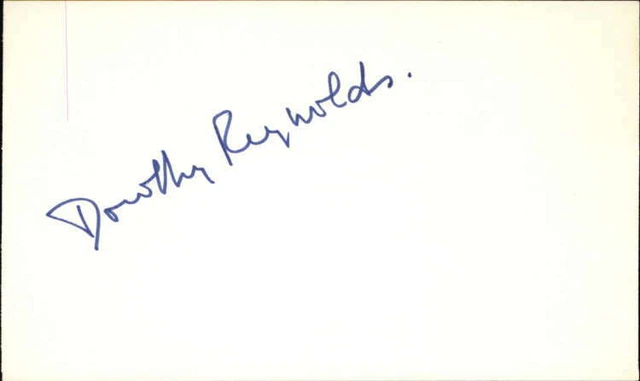 Dorothy Reynolds.